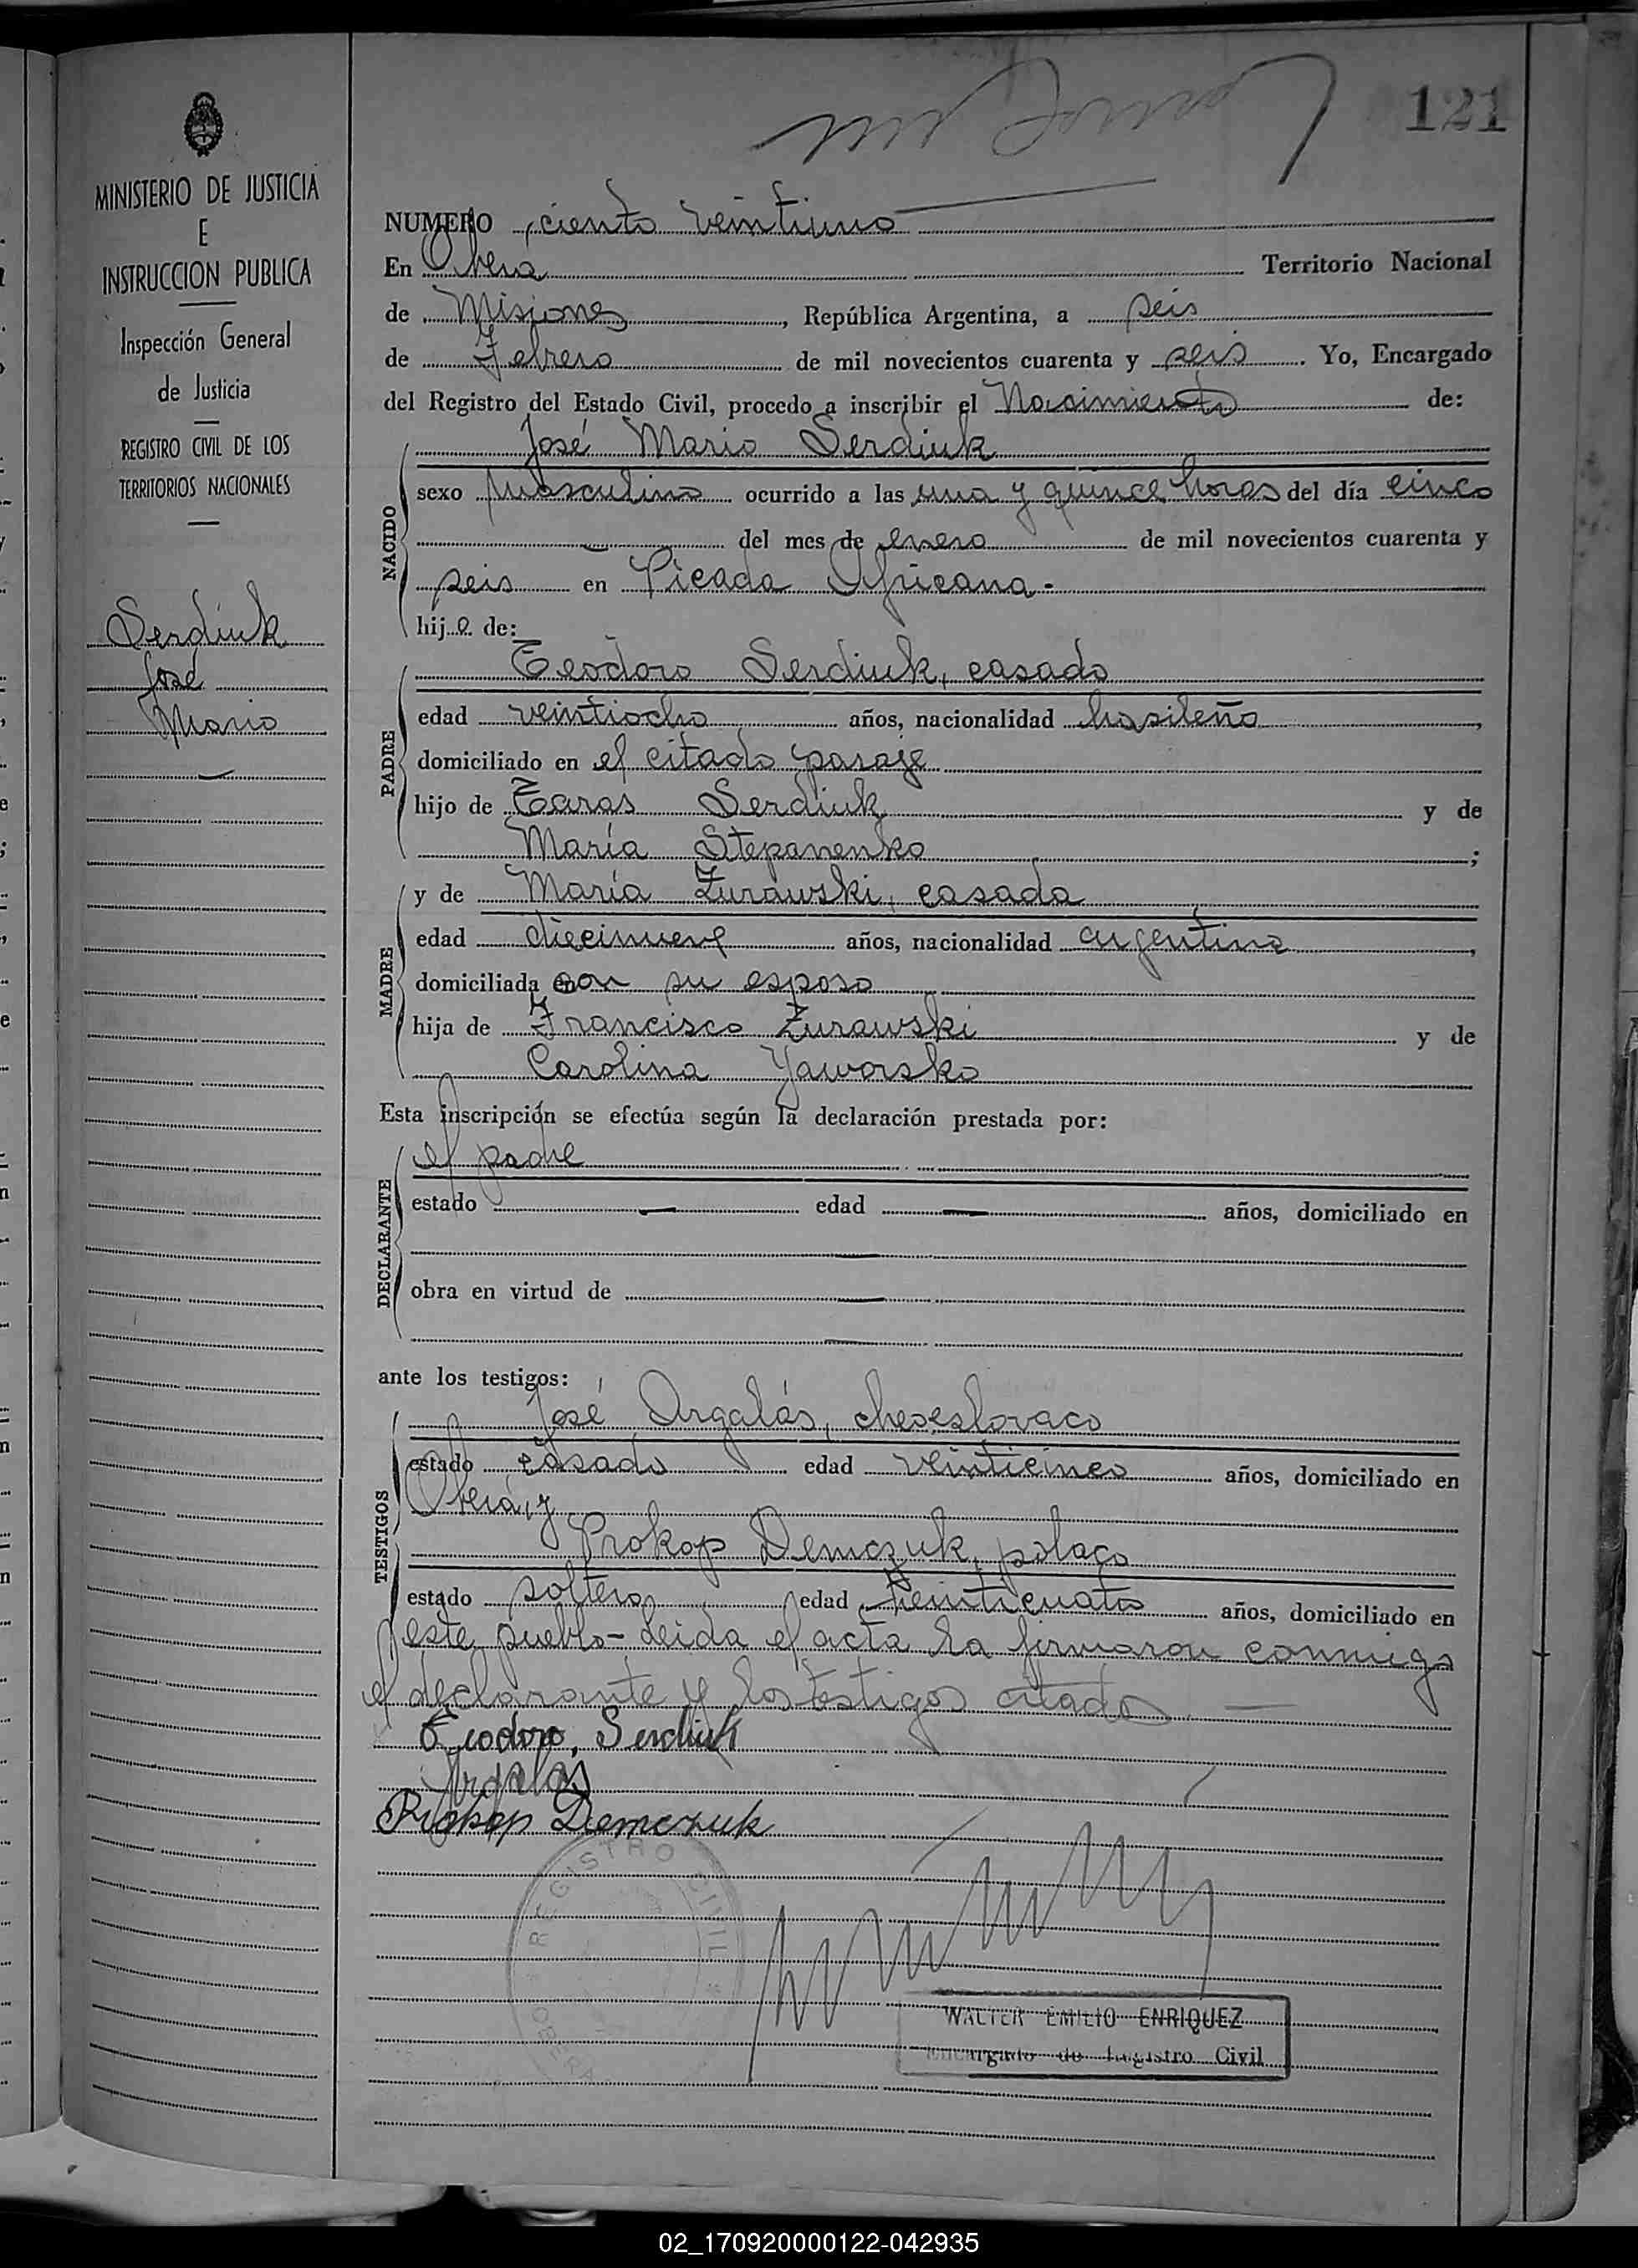 121
MINISTERIO DE JUSTICIA
E
INSTRUCCION PUBLICA
Inspección General
de Justicia
REGISTRO CIVIL DE LOS
TERRITORIOS NACIONALES
Serdiuk
José
Mario
NUMERO ciento veintiuno
En Oberá Territorio Nacional
de Misiones, República Argentina, a seis
de Febrero de mil novecientos cuarenta y seis. Yo, Encargado
del Registro del Estado Civil, procedo a inscribir el Nacimiento de:
NACIDO
José Mario Serdiuk
sexo masculino ocurrido a las una y quince horas del día cinco
del mes de enero de mil novecientos cuarenta y
seis en Picada Africana.-
hijo de:
PADRE
Teodoro Serdiuk, casado
edad veintiocho años, nacionalidad brasileño,
domiciliado en el citado paraje
hijo de Tarás Serdiuk y de
María Stepanenko;
MADRE
y de María Zurawski, casada
edad diecinueve años, nacionalidad argentina,
domiciliada con su esposo
hija de Francisco Zurawski y de
Carolina Yaworsko
Esta inscripción se efectúa según la declaración prestada por:
DECLARANTE
el padre
estado — edad — años, domiciliado en
obra en virtud de —
ante los testigos:
TESTIGOS
José Argalás, checoeslovaco
estado casado edad veinticinco años, domiciliado en
Oberá, y
Prokop Demczuk, polaco
estado soltero edad veinticuatro años, domiciliado en
este pueblo- Leida el acta la firmaron conmigo
el declarante y los testigos citados. —
Teodoro, Serdiuk
Argalas
Prokop Demczuk
REGISTRO CIVIL
OBERA
WALTER EMILIO ENRIQUEZ
Encargado de Registro Civil
02_170920000122-042935